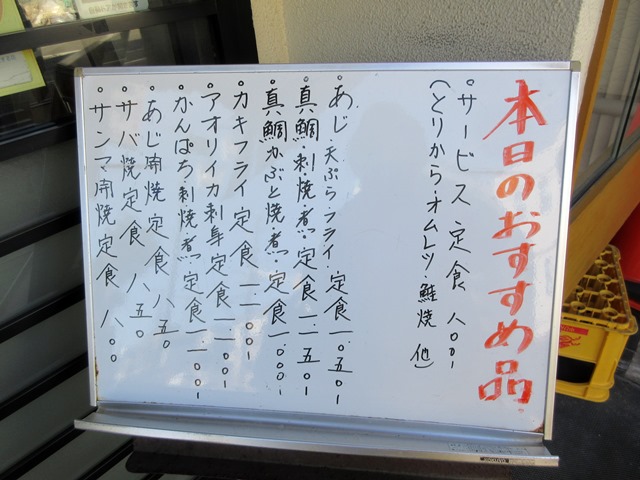 本日のおすすめ品
○サービス定食 八〇〇ー
(とりから・オムレツ・鮭焼 他)
○あじ・天ぷらフライ・定食 一、〇五〇ー
○真鯛・刺焼・煮・定食 一、一五〇ー
○真鯛かぶと焼・煮・定食 一、〇〇〇ー
○カキフライ定食 一、一〇〇ー
○アオリイカ刺身定食 一、一〇〇ー
○かんぱち刺焼・煮・定食 一、一〇〇ー
○あじ開焼定食 八五〇
○サバ焼定食 八五〇
○サンマ開焼定食 八〇〇